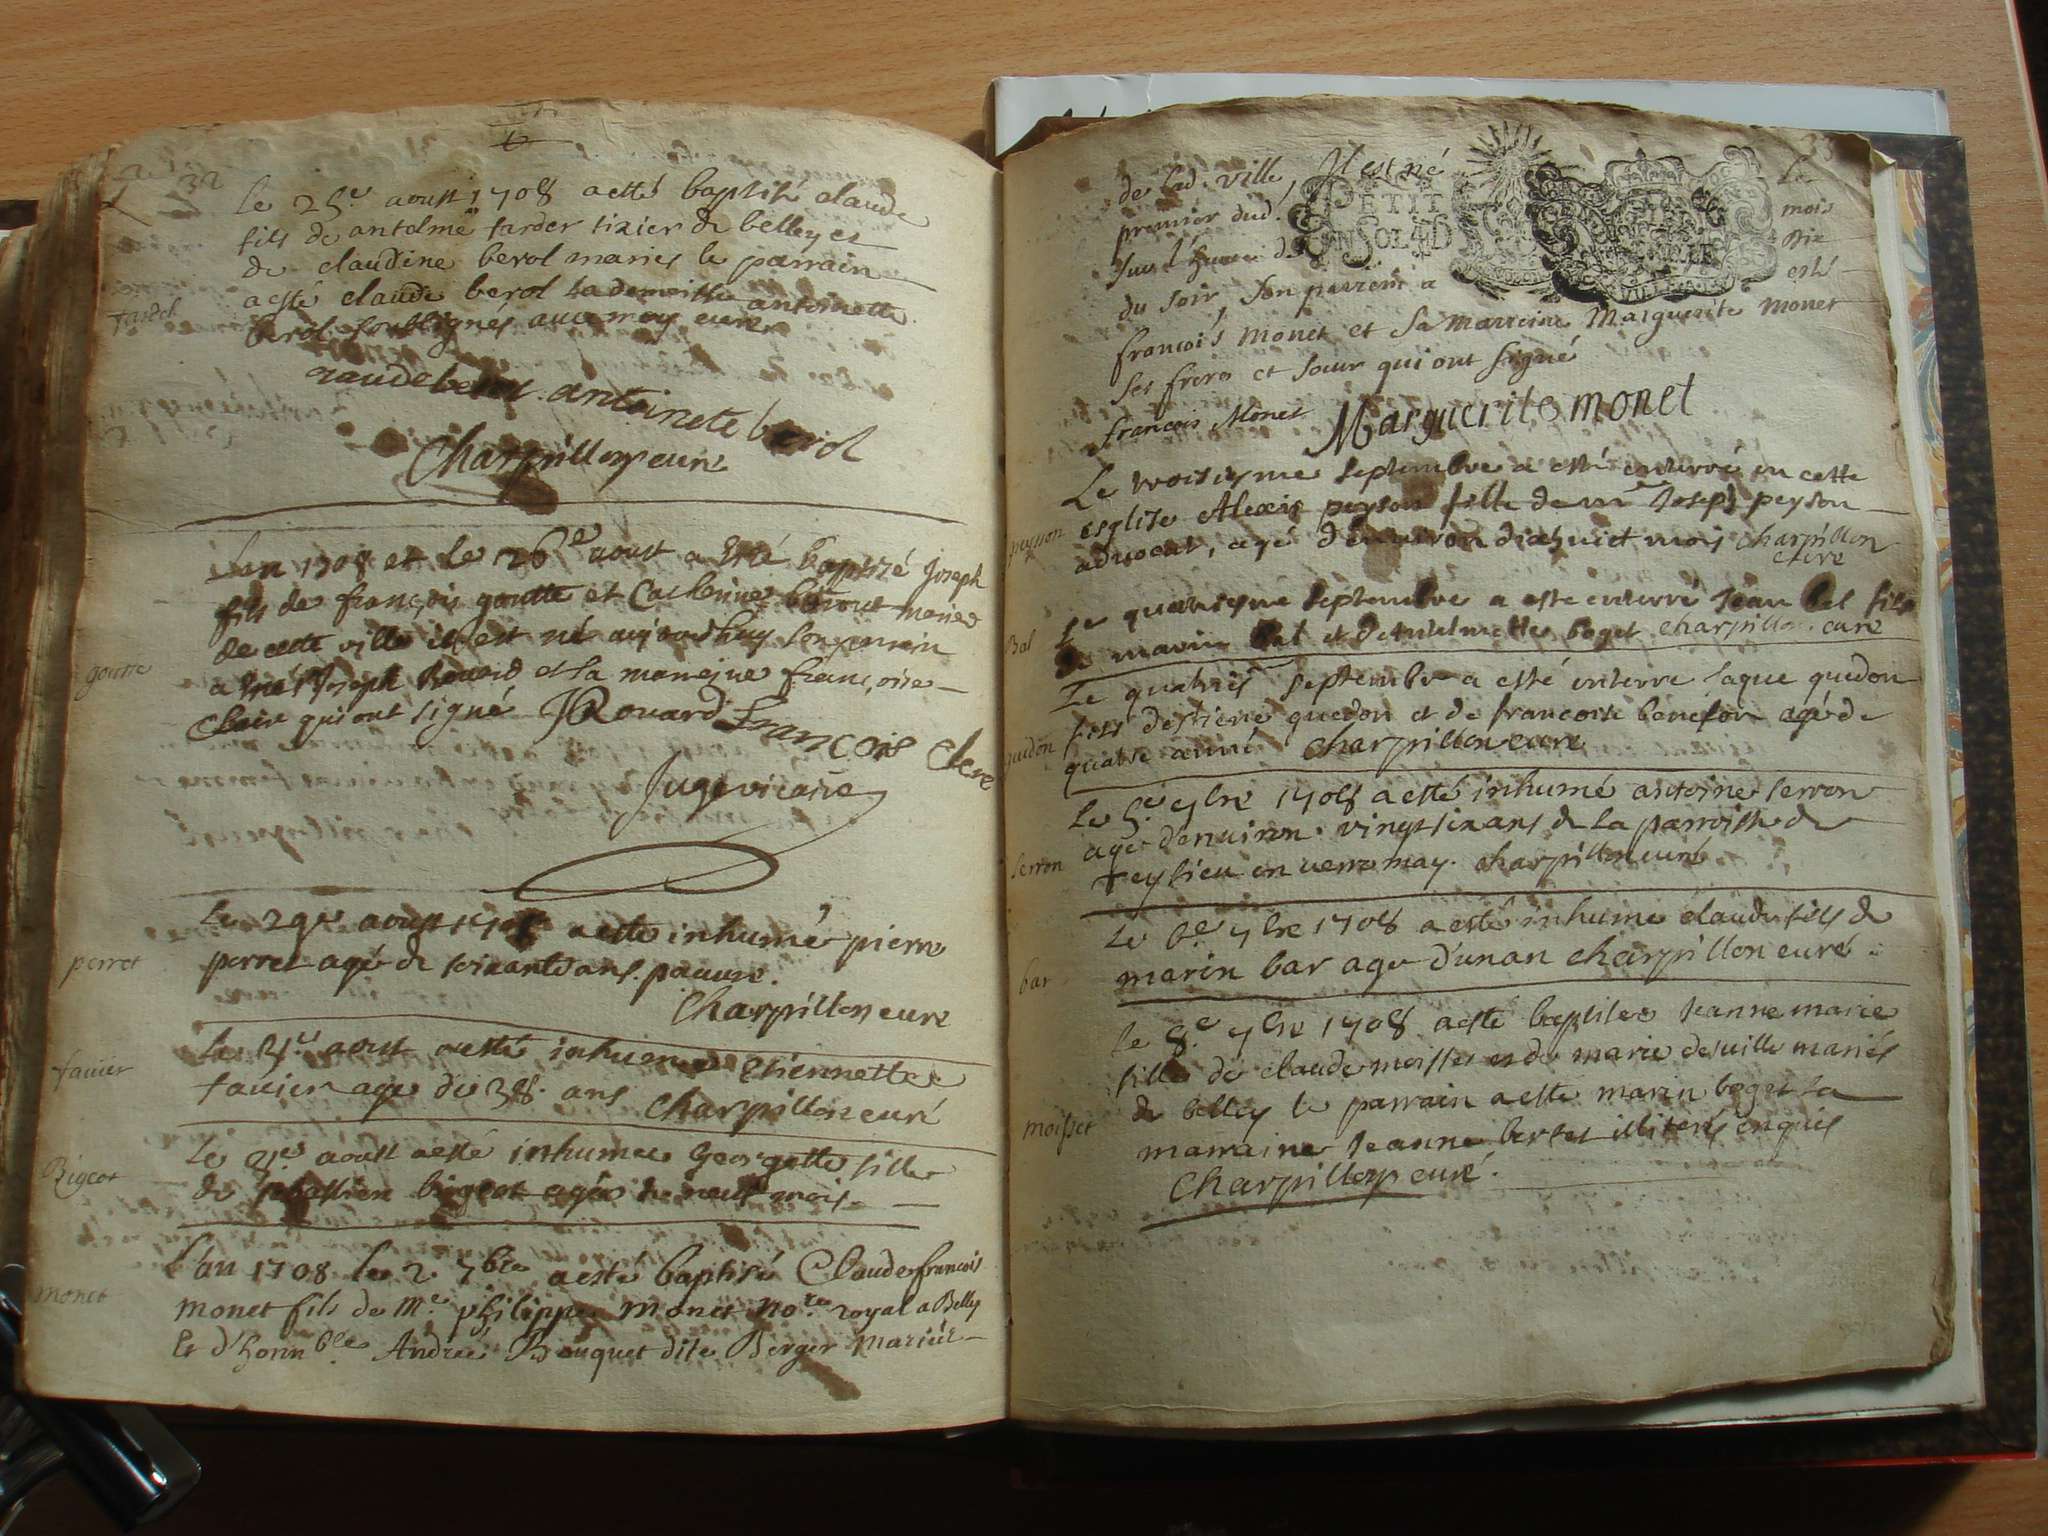 32
le 25.e aoust 1708 a esté baptisé claude
fils de antelme tardet tixier de belley et
de claudine berol mariés le parrain
a esté claude berol la demoiselle antoinette
berol soubsignés avec moy curé
tardet
claude berol antoinete berol
Charpillon curé
L'an 1708 et le 26e aoust a esté baptizé Joseph
fils de françois goutte et mariés
de cette ville il est né aujourdhuy son parrain
a esté Joseph Rouard et sa mareine françoise
Clerc qui ont signé JRouard françois Clerc
goutte
Juge vicaire
le 29e aoust 1708 a esté inhumé pierre
perret agé de soixante ans. pauvre.
perret
Charpillon curé
le 31.e aoust a esté inhumée Etiennette
favier agée de 38. ans Charpillon curé
favier
le 31e aoust a esté inhumée Georgette fille
de sebastien bigeot agée de neuf mois
Bigeot
L'an 1708 le 2 7bre a esté baptisé Claude francois
monet fils de Me. philippe monet nore. royal a Belley
Et d'honnble Andrée Bouquet dite Berger Mariés
monet
33
de lad. ville, Il est né le
premier dud. mois
sur l'heure de dix
du soir, son parrein a esté
PETIT
UN SOL 4 D
françois Monet et sa marreine Marguerite Monet
ses freres et soeur qui ont signé
francois Monet Marguerite monet
Le troisiyme septembre a esté enterré en cette
esglise Alexis peyson fille de mre Joseph peyson
advocat, agé d'environ dixhuict mois Charpillon
curé
peysson
Le quatriyme septembre a esté enterré Jean Bal fils
de marin Bal et d'Anthelmette boget Charpillon curé
Bal
Le quatries septembre a esté enterre Jaque quedon
fils destiene quedon et de francoise benefon agé de
quatre anné Charpillon curé
guidon
le 5.e 7bre 1708 a esté inhumé antoine serron
agé d'environ vingt six ans de la parroisse de
en verromay. Charpillon curé
serron
le 6.e 7bre 1708 a esté inhumé claude fils de
marin bar agé d'un an Charpillon curé
bar
le 8.e 7bre 1708 a esté baptisée Jeanne marie
fille de claude moisset et de marie desville mariés
de belley le parrain a esté marin boget la
marraine Jeanne bertet illiterés enquis
moisset
Charpillon curé.